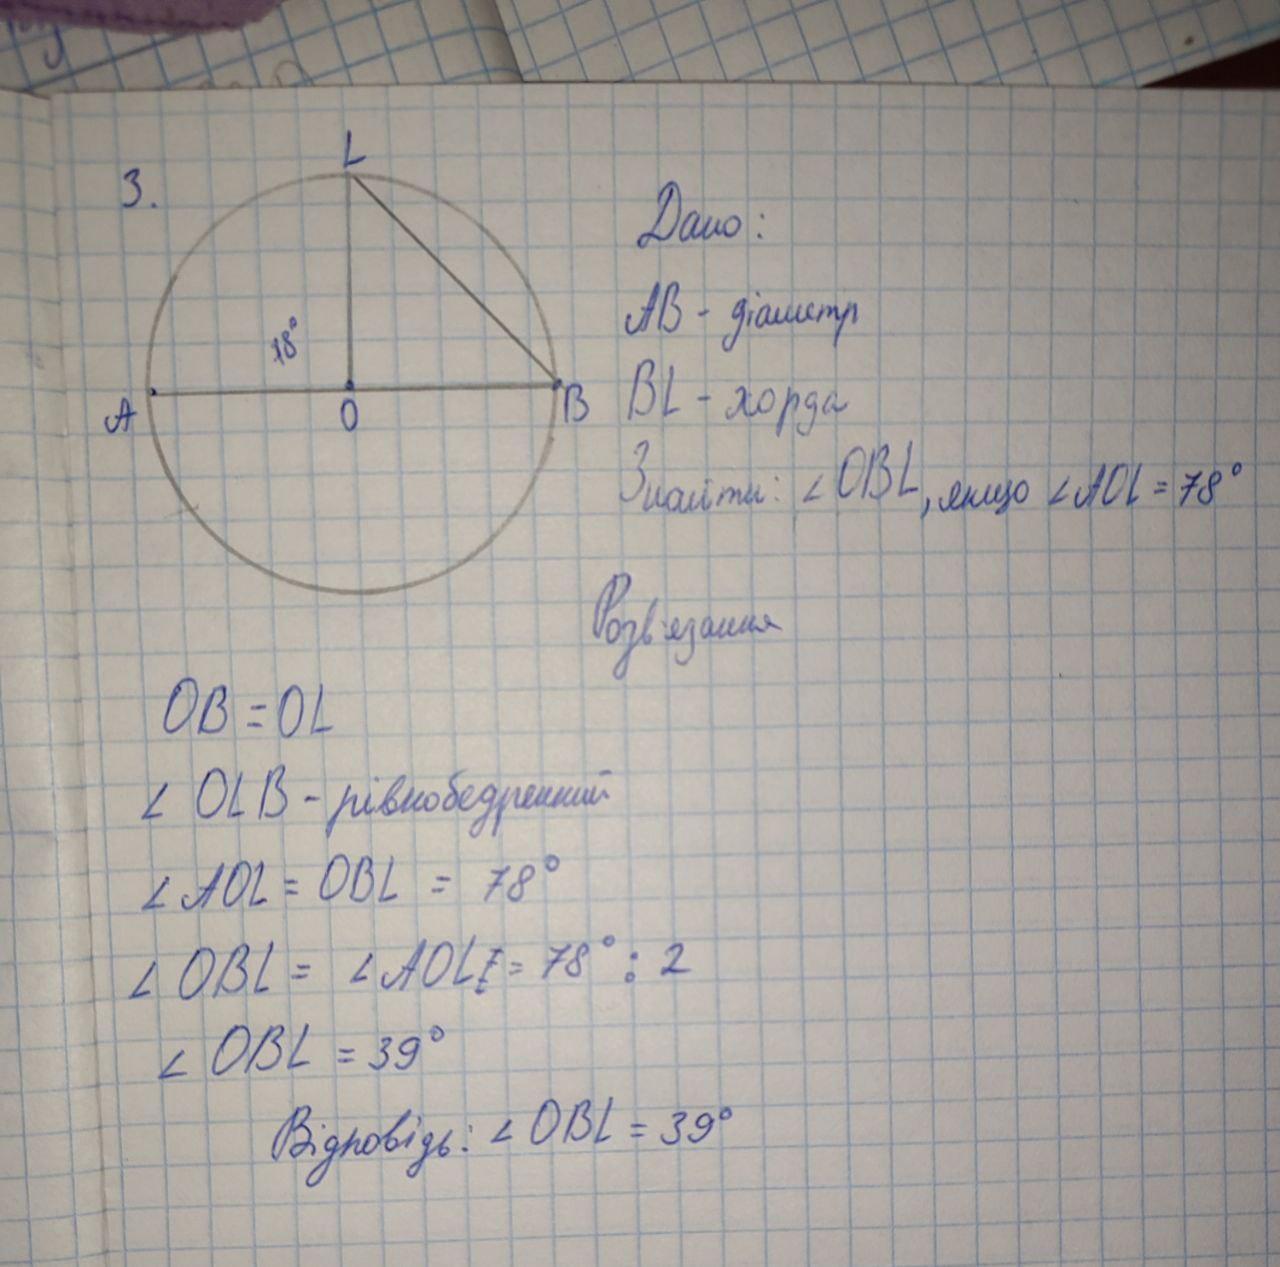 3.
L
78°
A
O
B
Дано:
AB - діаметр
BL - хорда
Знайти: ∠OBL, якщо ∠AOL = 78°
Розв'язання
OB = OL
∠ OLB - рівнобедренний
∠ AOL = OBL = 78°
∠ OBL = ∠ AOL = 78° : 2
∠ OBL = 39°
Відповідь: ∠ OBL = 39°